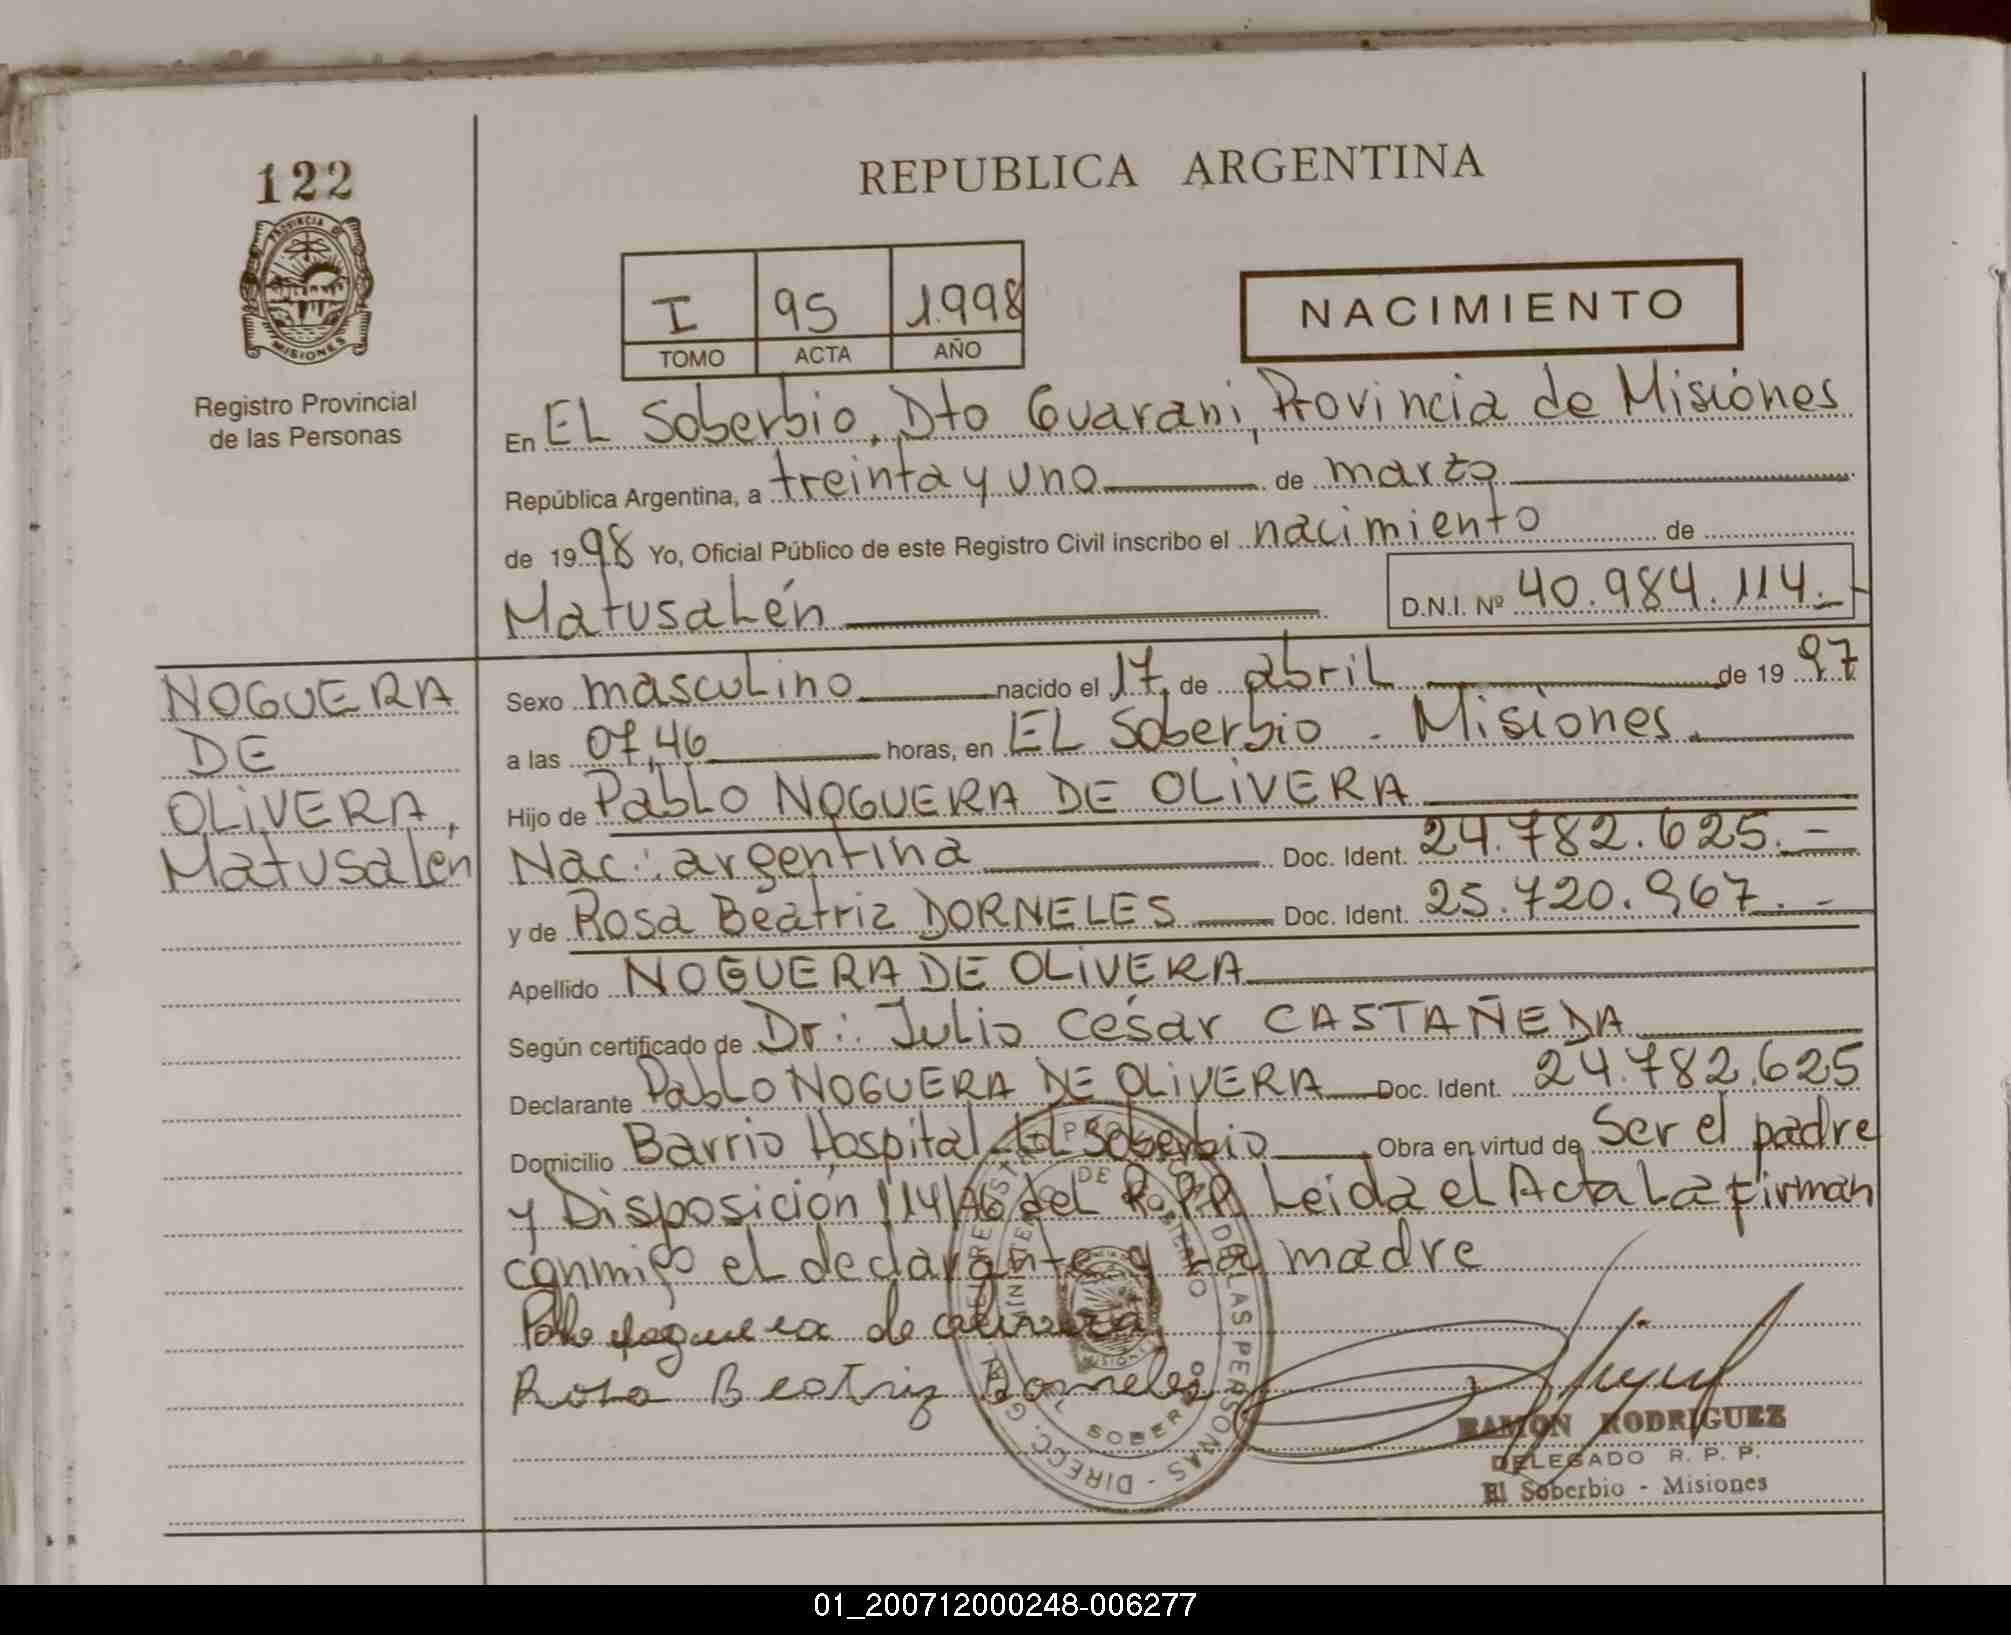 122
REPUBLICA ARGENTINA
PROVINCIA DE
MISIONES
Registro Provincial
de las Personas
I 95 1.998
TOMO ACTA AÑO
NACIMIENTO
En EL Soberbio, Dto Guarani, Provincia de Misiones
República Argentina, a treinta y uno de marzo
de 1998 Yo, Oficial Público de este Registro Civil inscribo el nacimiento de
Matusalén D.N.I. Nº 40.984.114.-
NOGUERA
DE
OLIVERA,
Matusalén
Sexo masculino nacido el 17 de abril de 1997
a las 07,46 horas, en EL Soberbio - Misiones.
Hijo de Pablo NOGUERA DE OLIVERA
Nac: argentina Doc. Ident. 24.782.625.-
y de Rosa Beatriz DORNELES Doc. Ident. 25.720.967.-
Apellido NOGUERA DE OLIVERA
Según certificado de Dr: Julio César CASTAÑEDA
Declarante Pablo NOGUERA DE OLIVERA Doc. Ident. 24.782.625
Domicilio Barrio Hospital El Soberbio Obra en virtud de Ser el padre
y Disposición 114/96 del R.P.P. Leída el Acta La firman
conmigo el declarante y la madre
Pablo noguera de olivera
Rosa Beatriz Dorneles
DE LAS PERSONAS - DIRECC. G
SOBERBIO
RAMON RODRIGUEZ
DELEGADO R. P. P.
El Soberbio - Misiones
01_200712000248-006277